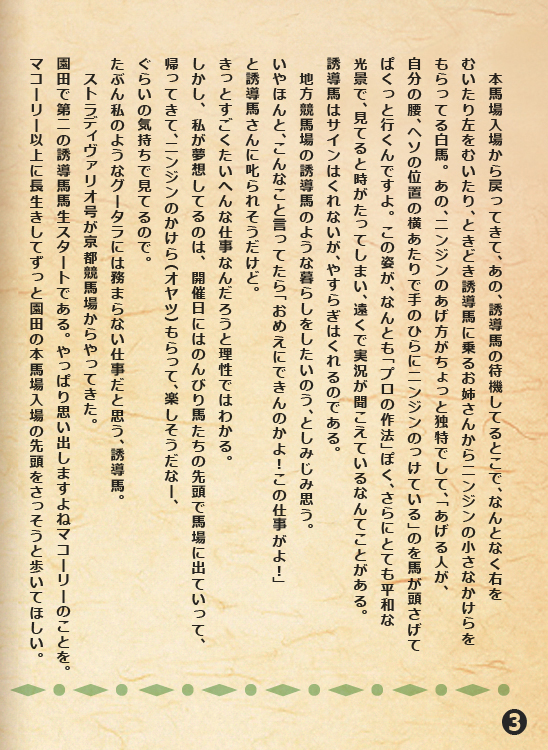 本馬場入場から戻ってきて、あの、誘導馬の待機してるとこで、なんとなく右を
むいたり左をむいたり、ときどき誘導馬に乗るお姉さんからニンジンの小さなかけらを
もらってる白馬。あの、ニンジンのあげ方がちょっと独特でして、「あげる人が、
自分の腰、ヘソの位置の横あたりで手のひらにニンジンのっけている」のを馬が頭さげて
ぱくっと行くんですよ。この姿が、なんとも「プロの作法」ぽく、さらにとても平和な
光景で、見てると時がたってしまい、遠くで実況が聞こえているなんてことがある。
誘導馬はサインはくれないが、やすらぎはくれるのである。
地方競馬場の誘導馬のような暮らしをしたいのう、としみじみ思う。
いやほんと、こんなこと言ってたら「おめえにできんのかよ!この仕事がよ!」
と誘導馬さんに叱られそうだけど。
きっとすごくたいへんな仕事なんだろうと理性ではわかる。
しかし、私が夢想してるのは、開催日にはのんびり馬たちの先頭で馬場に出ていって、
帰ってきて、ニンジンのかけら(オヤツ)もらって、楽しそうだなー、
ぐらいの気持ちで見てるので。
たぶん私のようなグータラには務まらない仕事だと思う、誘導馬。
ストラディヴァリオ号が京都競馬場からやってきた。
園田で第二の誘導馬馬生スタートである。やっぱり思い出しますよねマコーリーのことを。
マコーリー以上に長生きしてずっと園田の本馬場入場の先頭をさっそうと歩いてほしい。
3